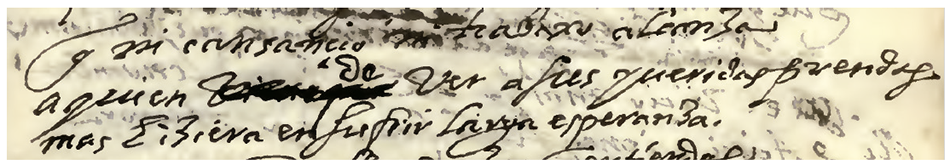 q ni cansancio ni trabaxo alcanza
a quien de Ver a sus queridas prendas
mas hiziera en sufrir larga esperanza.